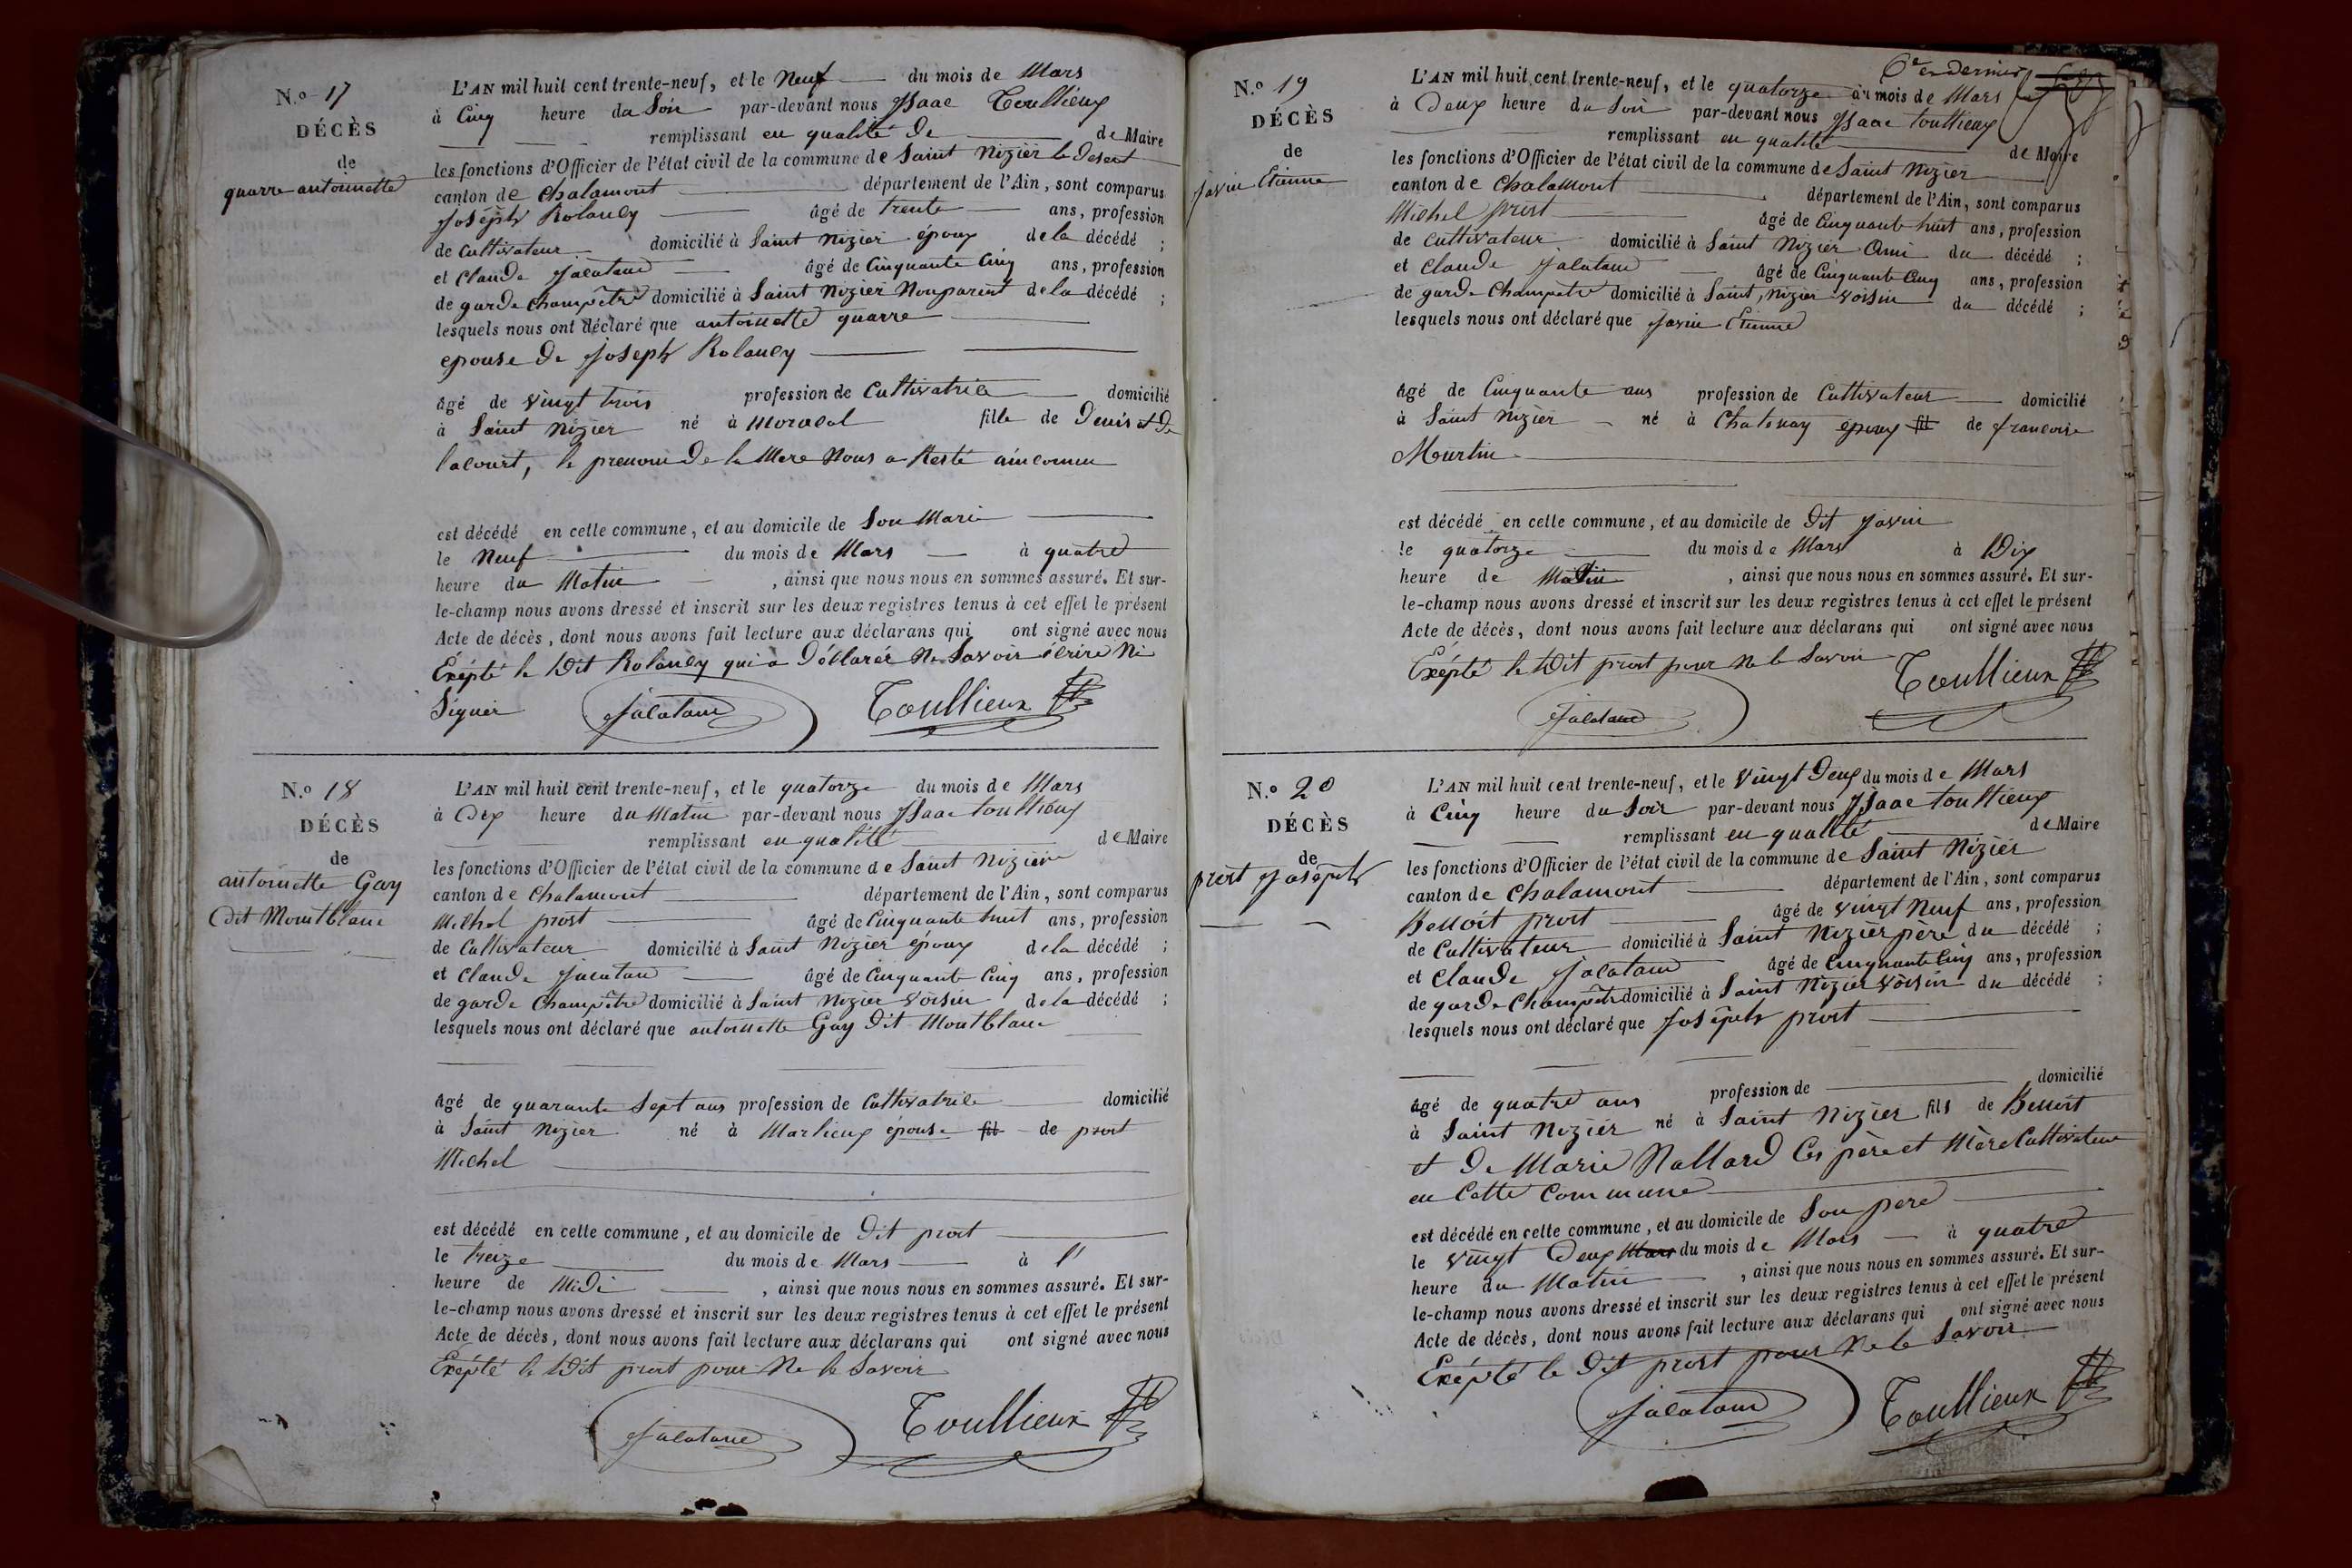 N.o 17
DÉCÈS
de
quarre antoinette
L'AN mil huit cent trente-neuf, et le Neuf du mois de Mars
à Cinq heure du Soir par-devant nous Isaac Toullieux
remplissant en qualité de de Maire
les fonctions d'Officier de l'état civil de la commune de Saint Nizier le Desert
canton de Chalamont département de l'Ain, sont comparus
Joseph Rolandy âgé de trente ans, profession
de Cultivateur domicilié à Saint Nizier époux de la décédé ;
et Claude Jacatand âgé de Cinquante Cinq ans, profession
de garde Champêtre domicilié à Saint Nizier Non parent de la décédé ;
lesquels nous ont déclaré que antoinette quarre
epouse de Joseph Rolandy
âgé de vingt trois profession de Cultivatrice domicilié
à Saint Nizier né à fille de Denis et de
lacourt, le prenom de la Mere Nous a Resté
est décédé en cette commune, et au domicile de Son Mari
le Neuf du mois de Mars à quatre
heure du Matin , ainsi que nous nous en sommes assuré. Et sur-
le-champ nous avons dressé et inscrit sur les deux registres tenus à cet effet le présent
Acte de décès, dont nous avons fait lecture aux déclarans qui ont signé avec nous
Éxépté le Dit Rolandy qui a Déclaré Ne Savoir écrire Ni
Signer Jacatand Toullieux
N.o 18
DÉCÈS
de
antoinette Gay
Dit Montblanc
L'AN mil huit cent trente-neuf, et le quatorze du mois de Mars
à Dix heure du Matin par-devant nous Isaac toullieux
remplissant en qualité de Maire
les fonctions d'Officier de l'état civil de la commune de Saint Nizier
canton de Chalamont département de l'Ain, sont comparus
Michel prost âgé de Cinquante huit ans, profession
de Cultivateur domicilié à Saint Nizier époux de la décédé ;
et Claude Jacatand âgé de Cinquante Cinq ans, profession
de garde Champêtre domicilié à Saint Nizier Voisin de la décédé ;
lesquels nous ont déclaré que antoinette Gay Dit Montblanc
âgé de quarante Sept ans profession de Cultivatrice domicilié
à Saint Nizier né à Marlieux epouse fil de prost
Michel
est décédé en cette commune, et au domicile de Dit prost
le treize du mois de Mars à l'
heure de Midi , ainsi que nous nous en sommes assuré. Et sur-
le-champ nous avons dressé et inscrit sur les deux registres tenus à cet effet le présent
Acte de décès, dont nous avons fait lecture aux déclarans qui ont signé avec nous
Éxépté le Dit prost pour Ne le Savoir
Jacatand Toullieux
6e et dernier
N.o 19
DÉCÈS
de
Javin Etienne
L'AN mil huit cent trente-neuf, et le quatorze du mois de Mars
à Deux heure du Soir par-devant nous Isaac toullieux
remplissant en qualité de Maire
les fonctions d'Officier de l'état civil de la commune de Saint Nizier
canton de Chalamont département de l'Ain, sont comparus
Michel prost âgé de Cinquante huit ans, profession
de Cultivateur domicilié à Saint Nizier Ami du décédé ;
et Claude Jacatand âgé de Cinquante Cinq ans, profession
de garde Champetre domicilié à Saint Nizier Voisin du décédé ;
lesquels nous ont déclaré que Javin Etienne
âgé de Cinquante ans profession de Cultivateur domicilié
à Saint Nizier né à Chatenay epoux fil de francoise
Mourlin
est décédé en cette commune, et au domicile de Dit Javin
le quatorze du mois de Mars à Dix
heure de Matin , ainsi que nous nous en sommes assuré. Et sur-
le-champ nous avons dressé et inscrit sur les deux registres tenus à cet effet le présent
Acte de décès, dont nous avons fait lecture aux déclarans qui ont signé avec nous
Éxépté le Dit prost pour Ne le Savoir
Jacatand Toullieux
N.o 20
DÉCÈS
de
prost Joseph
L'AN mil huit cent trente-neuf, et le Vingt Deux du mois de Mars
à Cinq heure du Soir par-devant nous Isaac toullieux
remplissant en qualité de Maire
les fonctions d'Officier de l'état civil de la commune de Saint Nizier
canton de Chalamont département de l'Ain, sont comparus
Benoit prost âgé de Vingt Neuf ans, profession
de Cultivateur domicilié à Saint Nizier père du décédé ;
et Claude Jacatand âgé de Cinquante Cinq ans, profession
de garde Champêtre domicilié à Saint Nizier Voisin du décédé ;
lesquels nous ont déclaré que Joseph prost
âgé de quatre ans profession de domicilié
à Saint Nizier né à Saint Nizier fils de Benoit
et de Marie Nallard Ces père et Mère Cultivateur
en Cette Commune
est décédé en cette commune, et au domicile de Son père
le Vingt Deux Mars du mois de Mars à quatre
heure du Matin , ainsi que nous nous en sommes assuré. Et sur-
le-champ nous avons dressé et inscrit sur les deux registres tenus à cet effet le présent
Acte de décès, dont nous avons fait lecture aux déclarans qui ont signé avec nous
Éxépté le Dit prost pour Ne le Savoir
Jacatand Toullieux